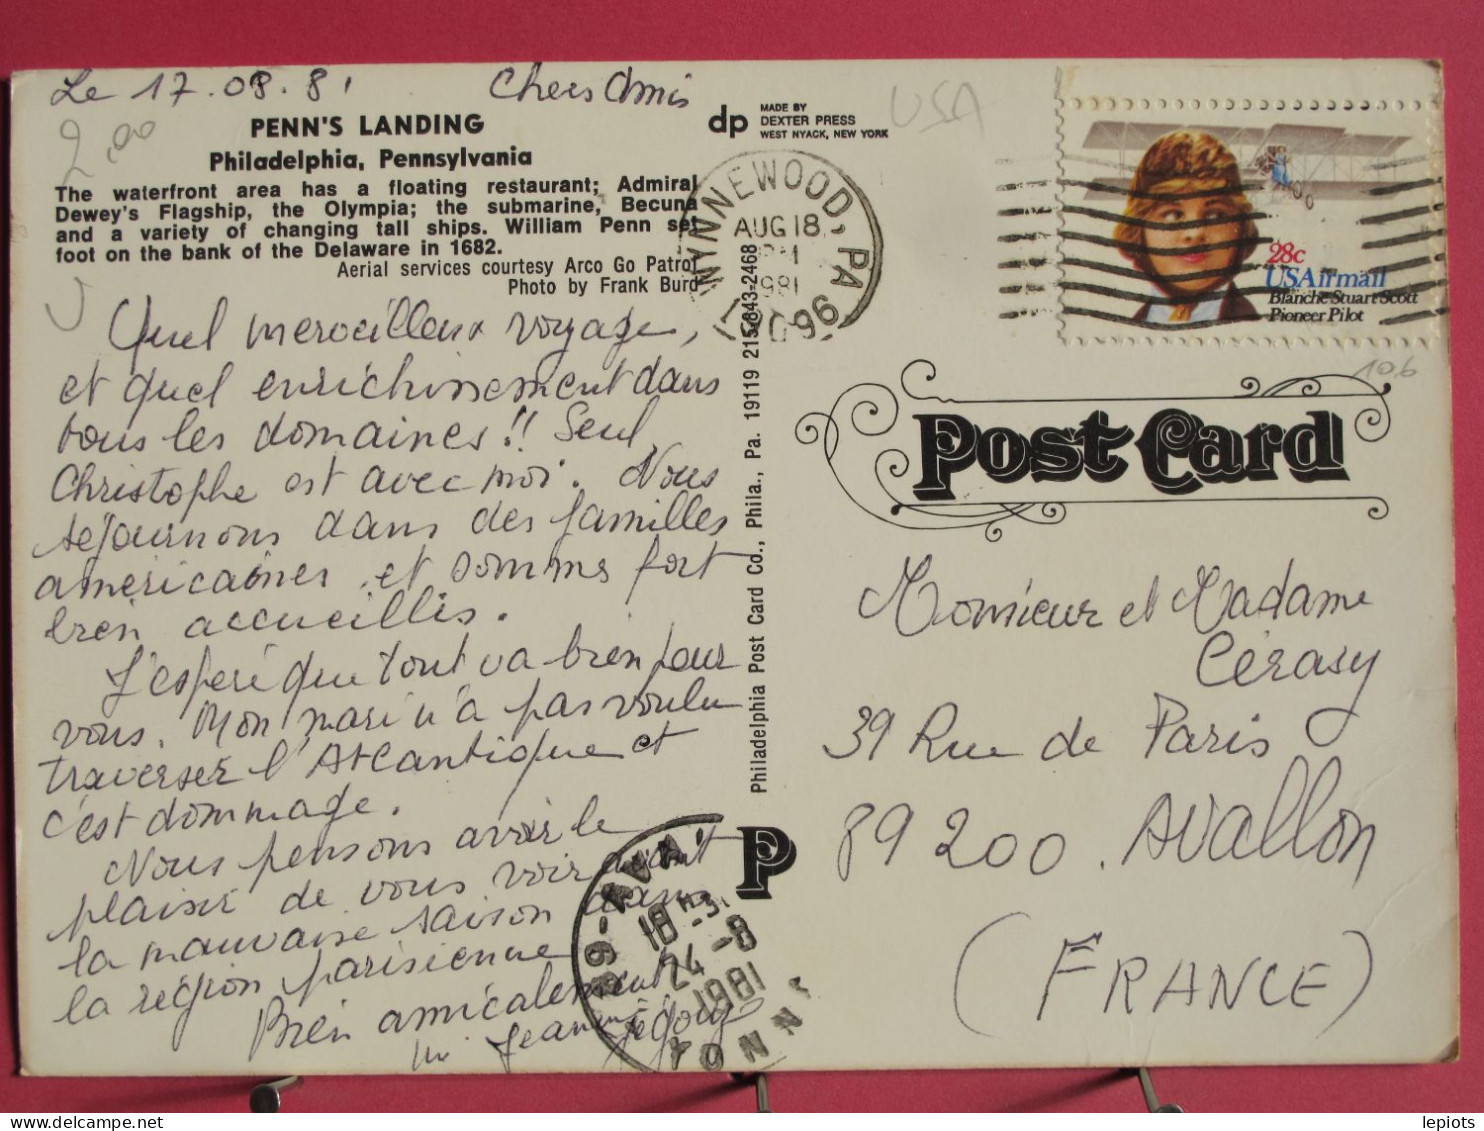 Le 17.08.81 Chers Amis
2,00
PENN'S LANDING
Philadelphia, Pennsylvania
The waterfront area has a floating restaurant; Admiral
Dewey's Flagship, the Olympia; the submarine, Becuna
and a variety of changing tall ships. William Penn set
foot on the bank of the Delaware in 1682.
Aerial services courtesy Arco Go Patrol
Photo by Frank Burd
Quel merveilleux voyage,
et quel enrichissement dans
tous les domaines!! Seul,
Christophe est avec moi. Nous
séjournons dans des familles
américaines et sommes fort
bien accueillis.
J'espère que tout va bien pour
vous. Mon mari n'a pas voulu
traverser l'Atlantique et
c'est dommage.
Nous pensons avoir le
plaisir de vous voir avant
la mauvaise saison dans
la région parisienne
Bien amicalement
dp MADE BY
DEXTER PRESS
WEST NYACK, NEW YORK
USA
WYNNEWOOD, PA
AUG 18
1981
28c
USAirmail
Blanche Stuart Scott
Pioneer Pilot
106
Philadelphia Post Card Co., Phila., Pa. 19119 215-843-2468
Post Card
Monsieur et Madame
Cérasy
39 Rue de Paris
89200. Avallon
(FRANCE)
P
18H
24-8
1981
YONNE
lepiots